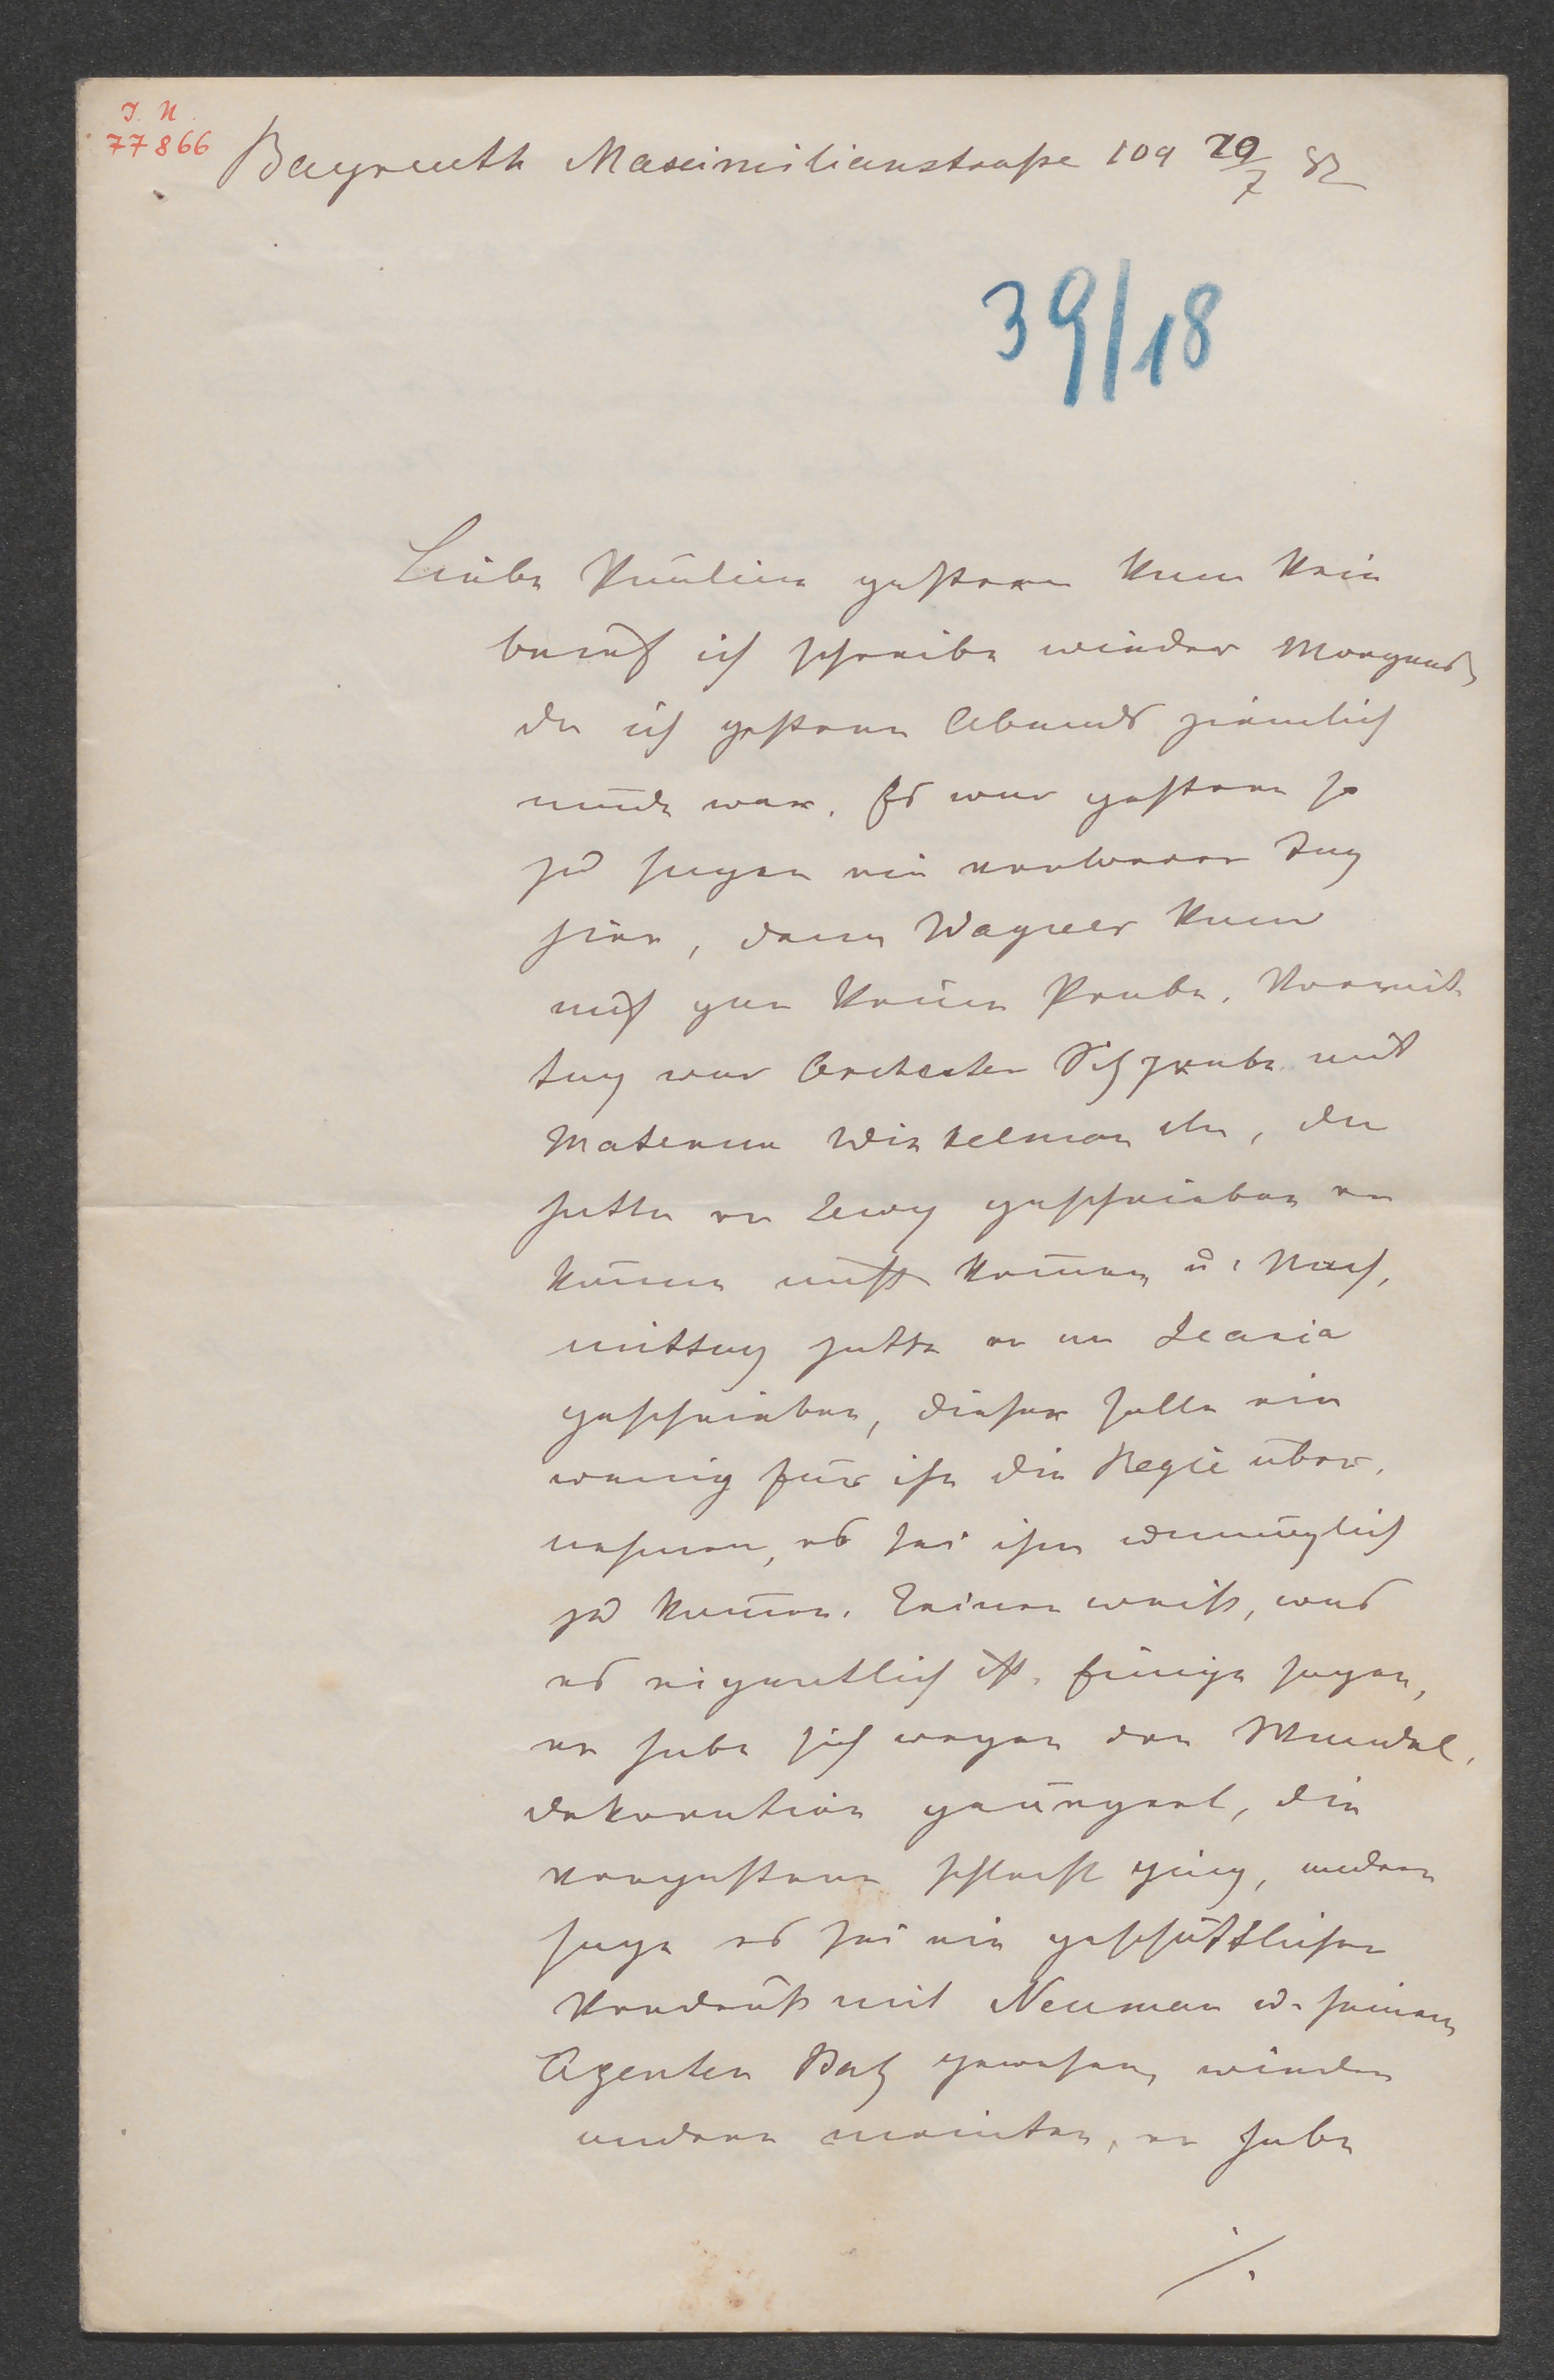 I. N.
77866
Bayreuth Maximilianstraße 109 20/7 82
39/18
Liebe Pauline gestern kam kein
brief ich schreibe wieder Morgends
da ich gestern Abends ziemlich
müde war. Es war gestern so
zu sagen ein verlorener Tag
hier, denn Wagner kam
auf gar keine Probe. Vormit
tag war Orchester Sitzprobe mit
Materna Winkelman etc, da
hatte er Levy geschrieben er
könne nicht komen u. Nach-
mittag hatte er an Scaria
geschrieben, dieser solle ein
wenig für ihn die Regie über-
nehmen, es sei ihm unmöglich
zu komen. Keiner weiß, was
es eigentlich ist. Einige sagen,
er habe sich wegen der Wandel-
dekoration geärgert, die
vorgestern schlecht ging, andere
sage es sei ein geschäftlicher
Verdruß mit Neuman u. seinem
Agenten Batz gewesen, wieder
andere meinten, er habe
./.